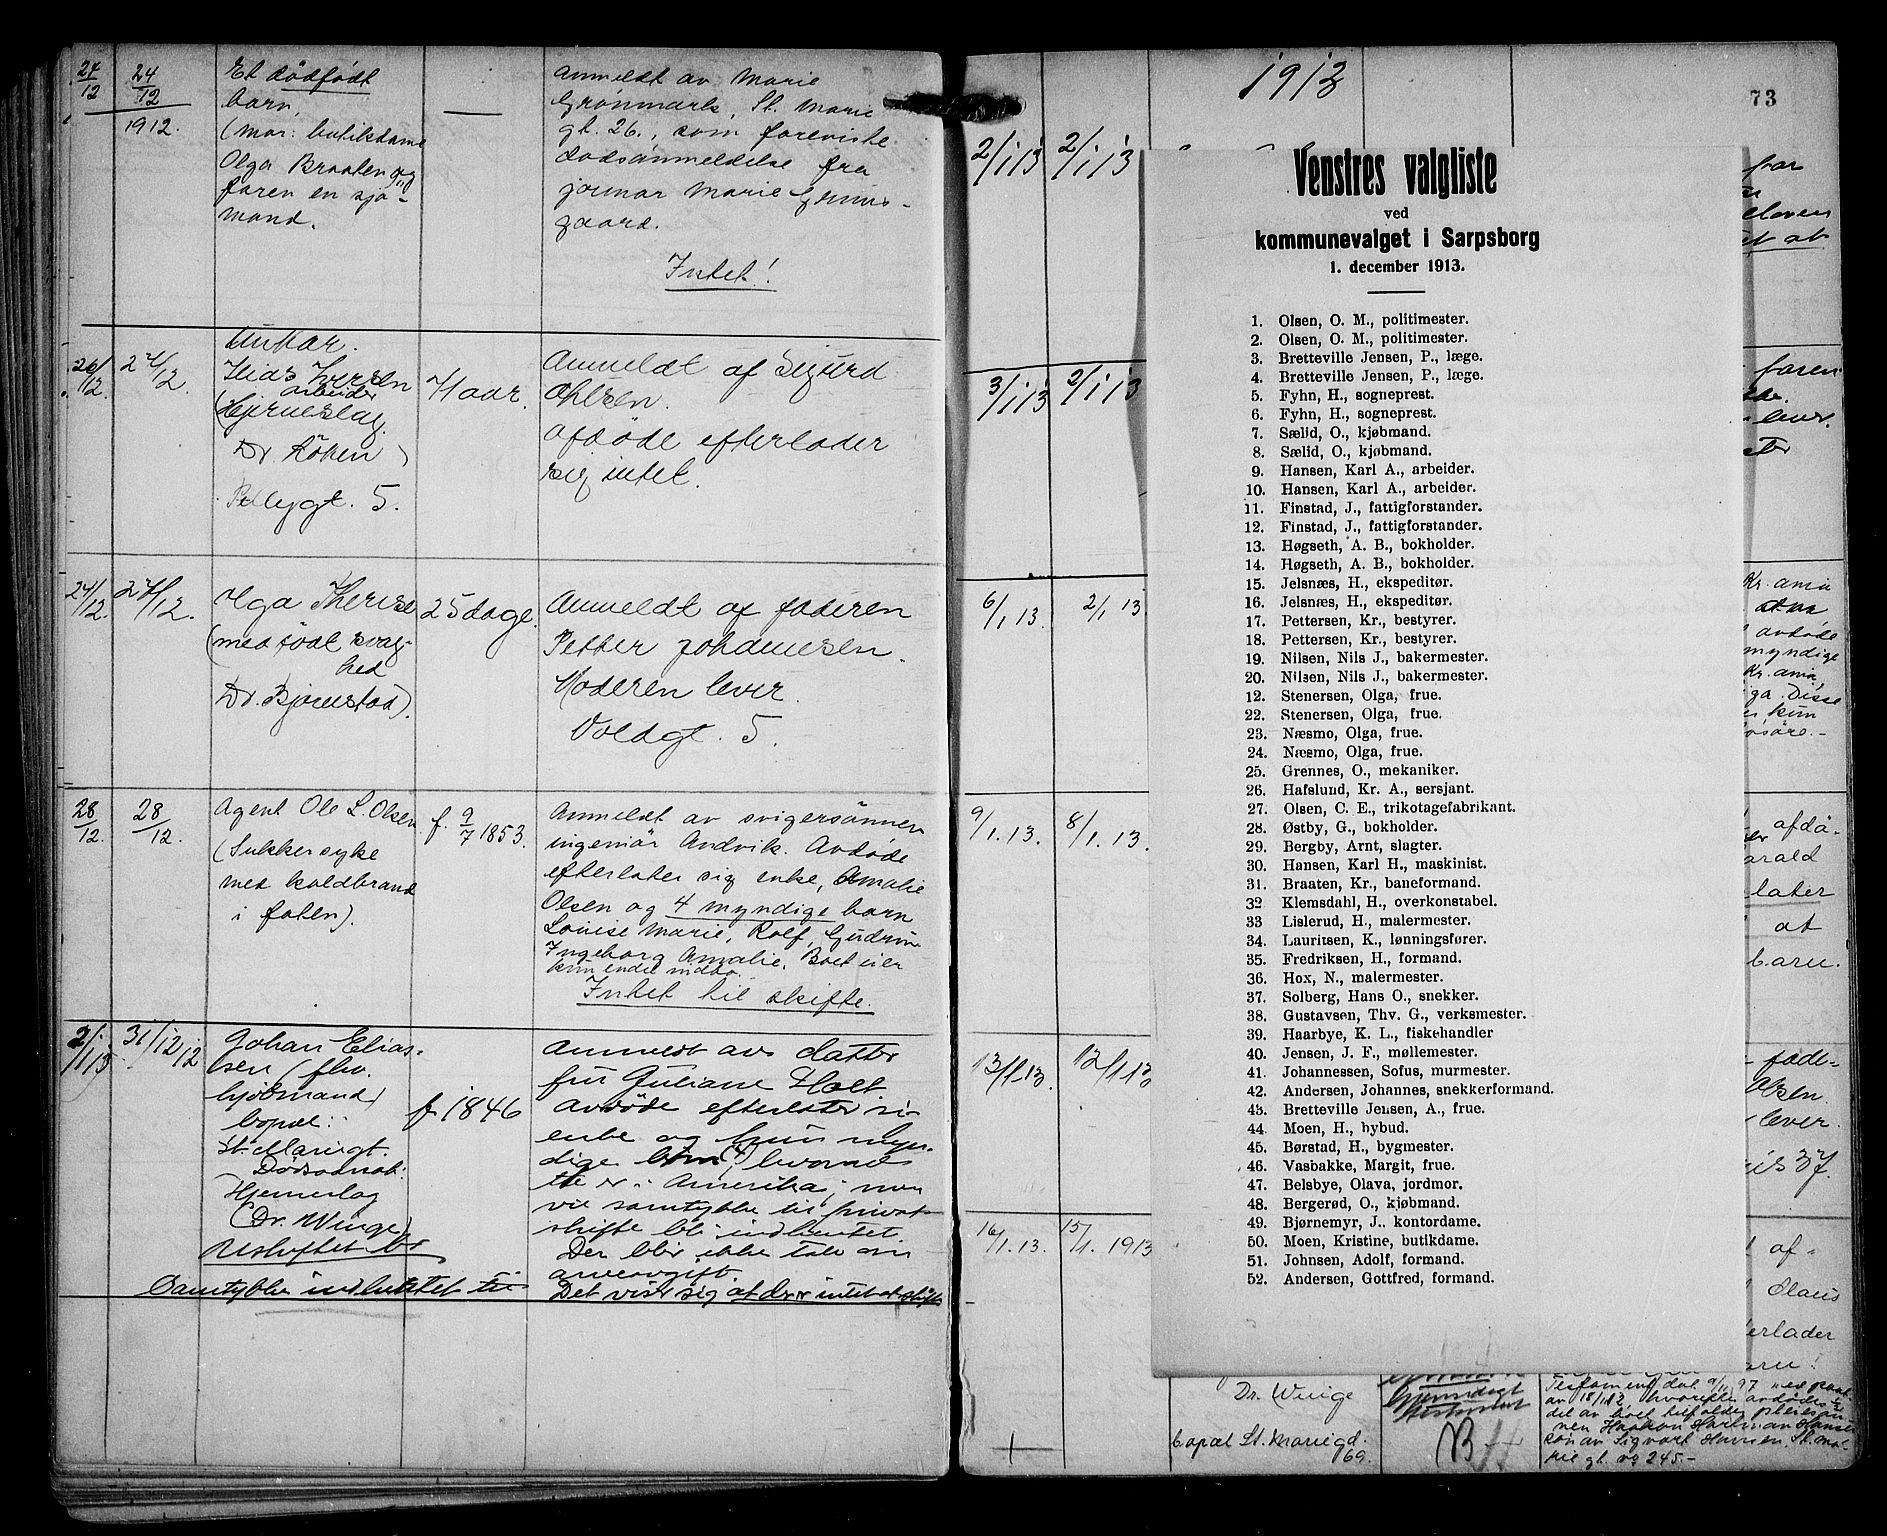 24/12
24/12
1912.
Et dødfødt
barn,
(mor: butiksdame
Olga Braaten og
faren en sjø-
mand.
Anmeldt av Marie
Grønmark, St. Marie
gt. 26., som foreviste
dødsanmeldelse fra
jormor Marie
gaard.
Intet!
26/12.
27/12.
Iversen
arbeider
(Hjerneslag.
Dr. )
gt. 5.
71 aar.
Anmeldt af Sigurd
Ohlsen.
Afdøde efterlader
sig intet.
24/12.
27/12.
Olga Therese
(medfødt svag-
hed
Dr. Bjørnstad).
25 dage.
Anmeldt af faderen
Petter Johannesen.
Moderen lever.
Voldgt. 5.
28/12.
28/12.
Agent Ole L. Olsen
(Sukkersyke
med koldbrand
i foten).
f. 9/7 1853.
Anmeldt av svigersønnen
ingeniør Andvik. Avdøde
efterlater sig enke, Amalie
Olsen og 4 myndige barn
Louise Marie, Rolf, Gudrun
Ingeborg Amalie. Boet eier
kun endel indbo.
Intet til skifte.
2/1 13
31/12 12
Johan Elias-
sen (fhv.
kjøbmand)
bopæl:
St. Mariegt.
Dødsaarsak:
Hjerneslag
(Dr. Winge)
Uskiftet bo
Samtykke indhentet
f. 1846
Anmeldt av datter
fru Juliane Holt
Avdøde efterlater sig
enke og kun myn-
dige barn (4) hvorav
er i Amerika;
vil samtykke til privat
skifte bli indhentet.
Der blir ikke tale om
arveavgift.
Det viser sig at der er intet at skifte
1913
73
2/1 13
2/1 13
3/1 13
2/1 13
6/1 13.
2/1 13
9/1. 13.
8/1. 13.
13/1 13.
12/1 13
16/1. 13.
15/1. 1913
Venstres valgliste
ved
kommunevalget i Sarpsborg
1. december 1913.
1. Olsen, O. M., politimester.
2. Olsen, O. M., politimester.
3. Bretteville Jensen, P., læge.
4. Bretteville Jensen, P., læge.
5. Fyhn, H., sogneprest.
6. Fyhn, H., sogneprest.
7. Sælid, O., kjøbmand.
8. Sælid, O., kjøbmand.
9. Hansen, Karl A., arbeider.
10. Hansen, Karl A., arbeider.
11. Finstad, J., fattigforstander.
12. Finstad, J., fattigforstander.
13. Høgseth, A. B., bokholder.
14. Høgseth, A. B., bokholder.
15. Jelsnæs, H., ekspeditør.
16. Jelsnæs, H., ekspeditør.
17. Pettersen, Kr., bestyrer.
18. Pettersen, Kr., bestyrer.
19. Nilsen, Nils J., bakermester.
20. Nilsen, Nils J., bakermester.
12. Stenersen, Olga, frue.
22. Stenersen, Olga, frue.
23. Næsmo, Olga, frue.
24. Næsmo, Olga, frue.
25. Grennes, O., mekaniker.
26. Hafslund, Kr. A., sersjant.
27. Olsen, C. E., trikotagefabrikant.
28. Østby, G., bokholder.
29. Bergby, Arnt, slagter.
30. Hansen, Karl H., maskinist.
31. Braaten, Kr., baneformand.
32 Klemsdahl, H., overkonstabel.
33 Lislerud, H., malermester.
34. Lauritsen, K., lønningsfører.
35. Fredriksen, H., formand.
36. Hox, N., malermester.
37. Solberg, Hans O., snekker.
38. Gustavsen, Thv. G., verksmester.
39. Haarbye, K. L., fiskehandler
40. Jensen, J. F., møllemester.
41. Johannessen, Sofus, murmester.
42. Andersen, Johannes, snekkerformand.
43. Bretteville Jensen, A., frue.
44. Moen, H., bybud.
45. Børstad, H., bygmester.
46. Vasbakke, Margit, frue.
47. Belsbye, Olava, jordmor.
48. Bergerød, O., kjøbmand.
49. Bjørnemyr, J., kontordame.
50. Moen, Kristine, butikdame.
51. Johnsen, Adolf, formand.
52. Andersen, Gottfred, formand.
far
loven
et at
faren
lever.
Kr. ama
avdøde
myndige
Kr. ama,
Disse
kun
afdø-
arald
later
at
barn.
fade-
Olsen.
lever.
37.
af
Olaus
erlader
Dr. Winge
bopæl St. Mariegd.
69.
Testament dat 9/11 97
av 18/1 12 hvorefter avdødes
del av boet tilfalder pleiesøn
nen Haakon Hartman Hansen
søn av Sigvart Hansen. St. Ma-
rie gt. no 245.-